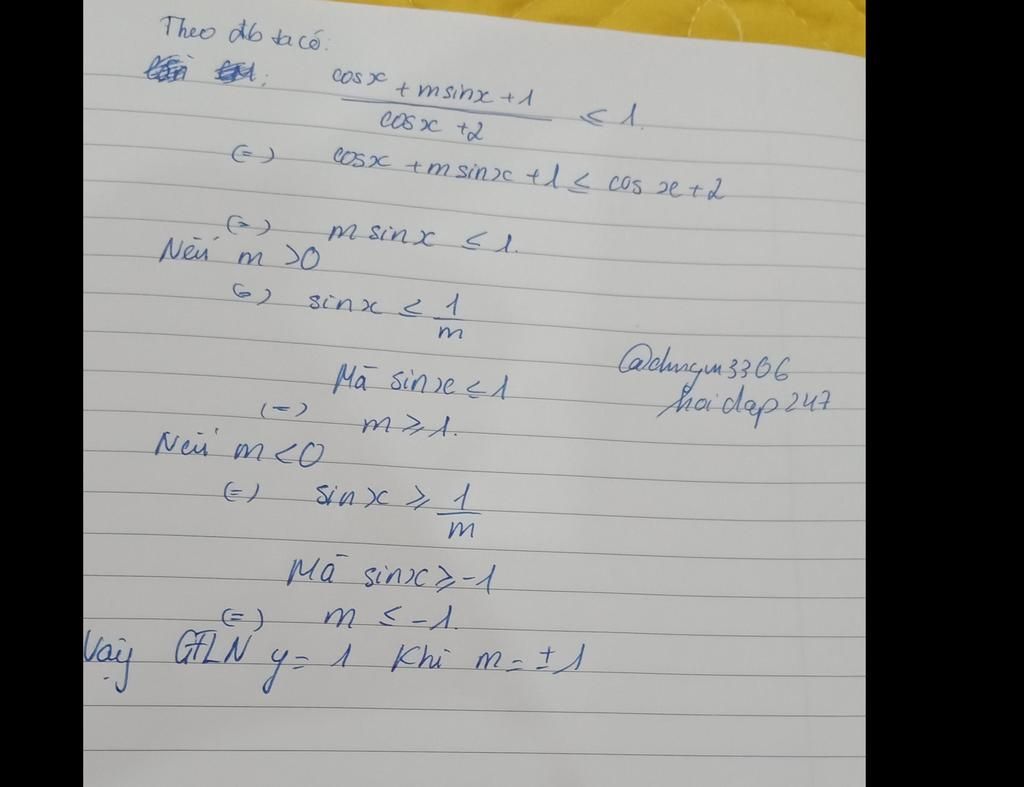 Theo đb ta có:
cosx + msinx + 1 / cosx + 2 ≤ 1.
(=) cosx + m sinx + 1 ≤ cos x + 2
(=) m sinx ≤ 1.
Nếu m > 0
(=) sinx ≤ 1/m
Mà sinx ≤ 1
(=) m ≥ 1.
Nếu m < 0
(=) sinx ≥ 1/m
Mà sinx ≥ -1
(=) m ≤ -1.
Vậy GTLN y = 1 Khi m = ± 1
hoidap247